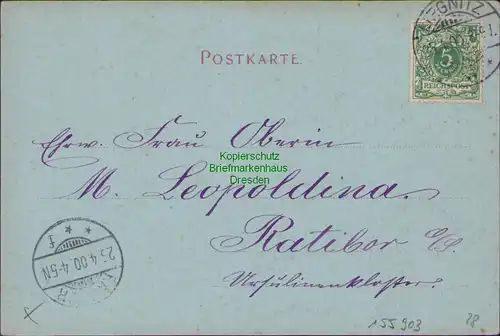 LIEGNITZ
POSTKARTE.
5
REICHSPOST
Ehrw. Frau Oberin
Kopierschutz
Briefmarkenhaus
Dresden
M. Leopoldina.
Ratibor O/S.
Ursulinenkloster.
25.4.00.4-5N
f
155903
28